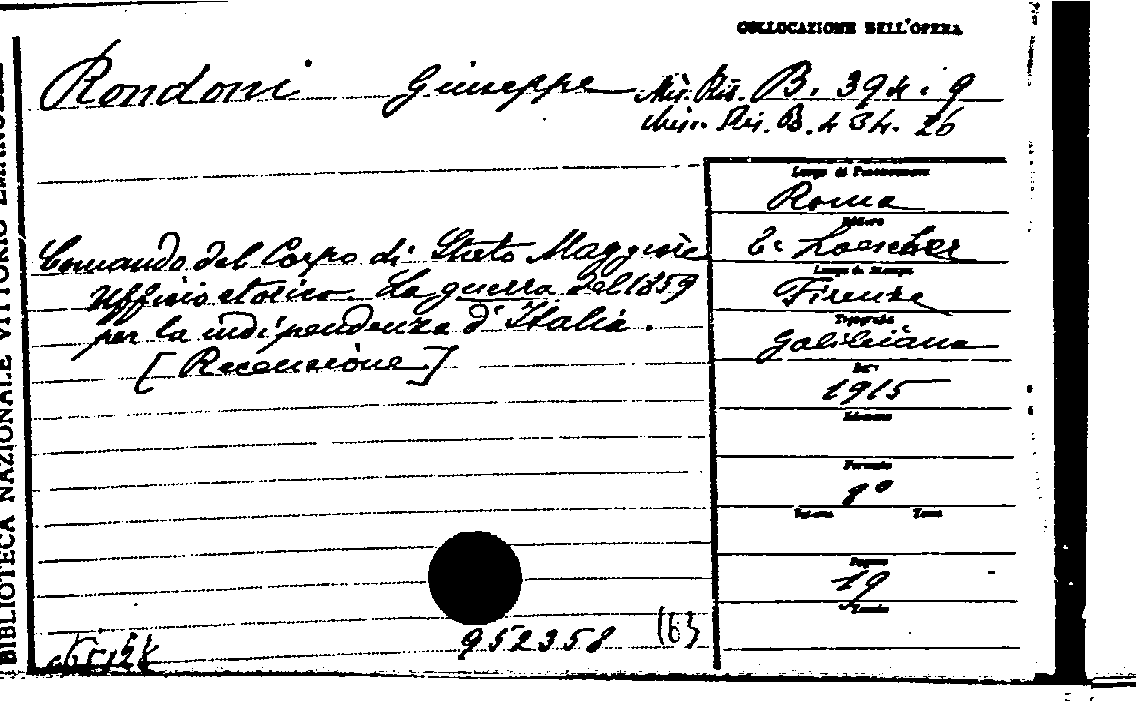 COLLOCAZIONE DELL'OPERA
Rondoni Giuseppe Mis. Ris. B. 394. 9
Mis. Ris. B. 434. 26
Comando del Corpo di Stato Maggiore
Ufficio storico. La guerra del 1859
per la indipendenza d'Italia.
[Recensione]
Luogo di Pubblicazione
Roma
Editore
E. Loescher
Luogo di Stampa
Firenze
Tipografia
Galileiana
1915
Edizione
Formato
8º
Volume Tomo
Pagine
19
952358 (63
BIBLIOTECA NAZIONALE VITTORIO EMANUELE